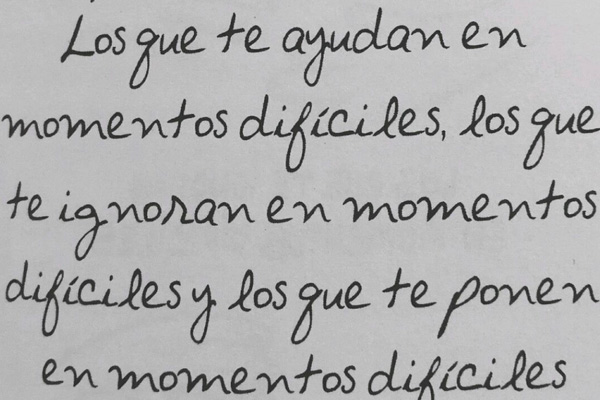 Los que te ayudan en
momentos difíciles, los que
te ignoran en momentos
difíciles y los que te ponen
en momentos difíciles